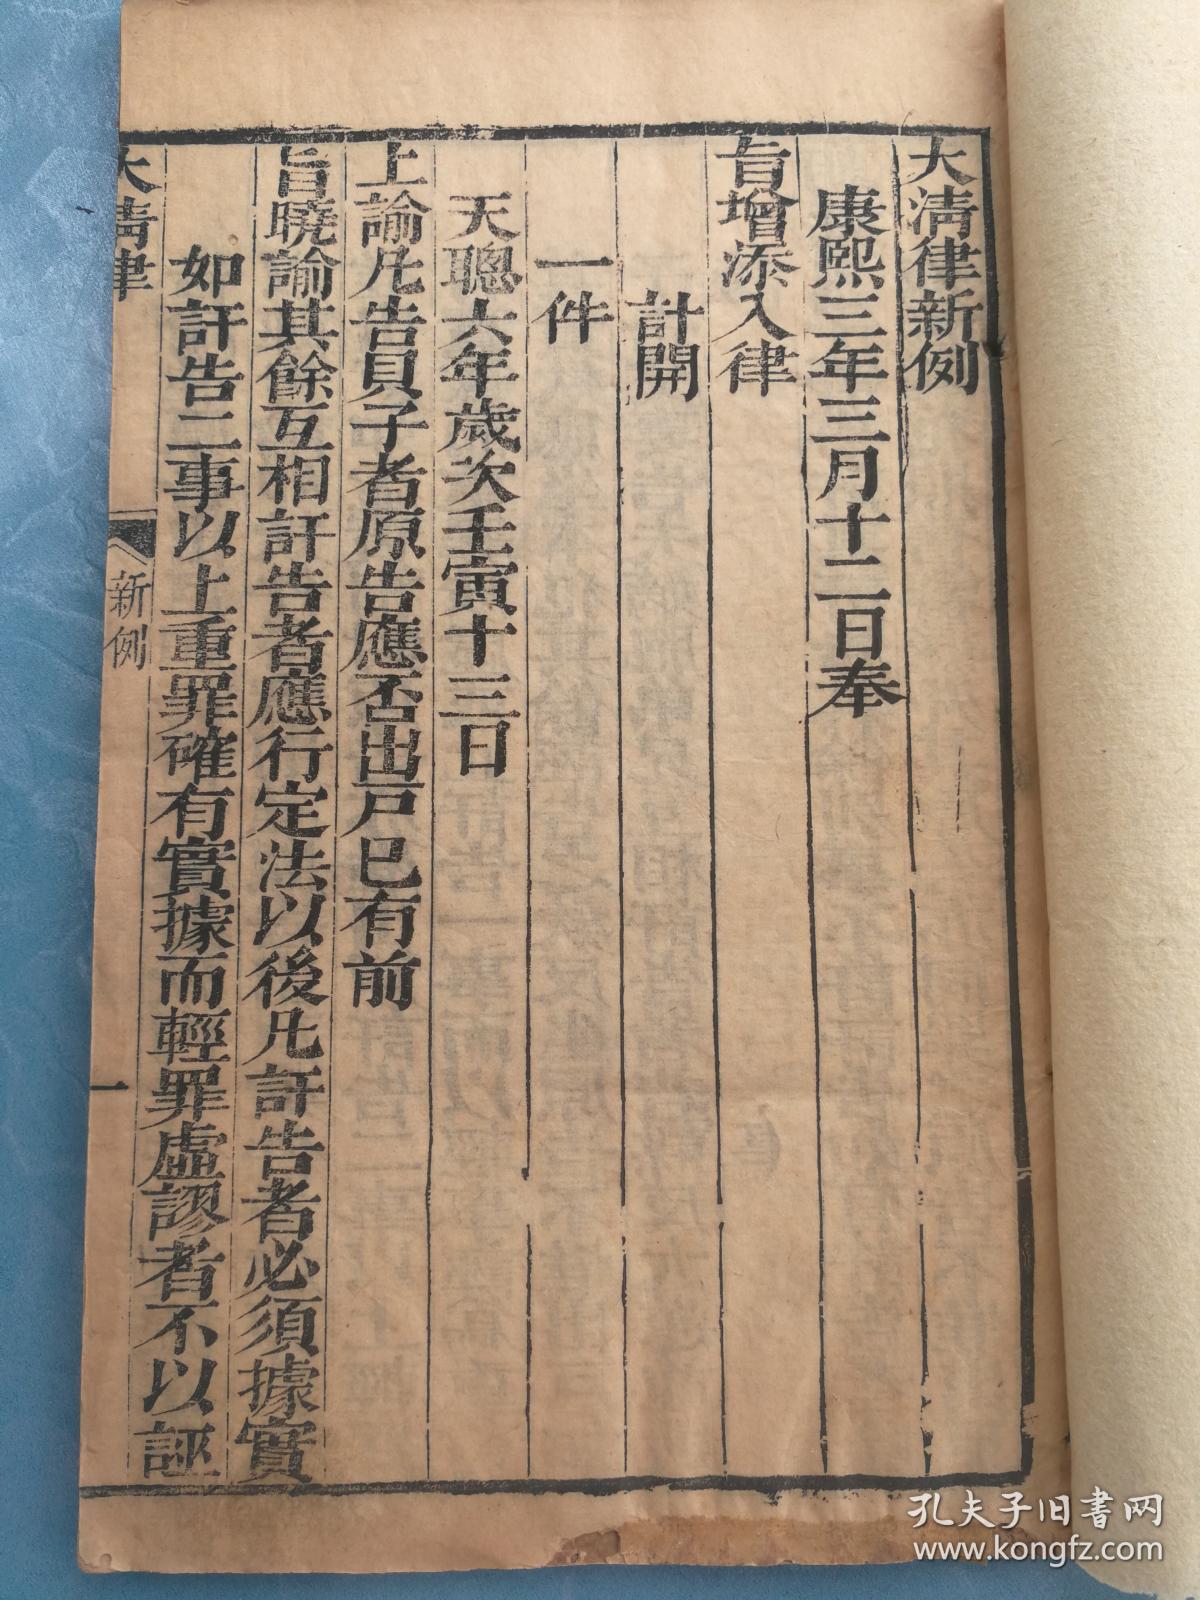 大清律新例
康熙三年三月十二日奉
旨增添入律
計開
一件
天聰六年歲次壬寅十三日
上諭凡告貝子者原告應否出戸已有前
旨曉諭其餘互相訐告者應行定法以後凡訐告者必須據實
如訐告二事以上重罪確有實據而輕罪虛謬者不以誣
大清律
新例
一
孔夫子旧书网
www.kongfz.com